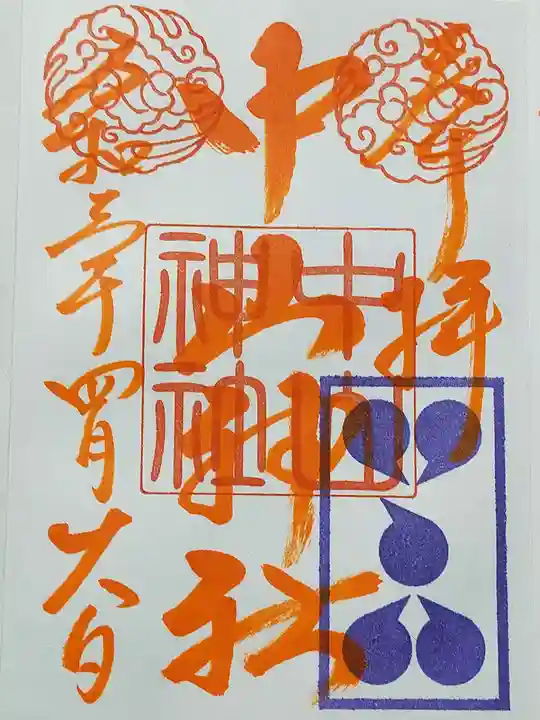 奉拝
中山神社
中山
神社
令和三年四月六日